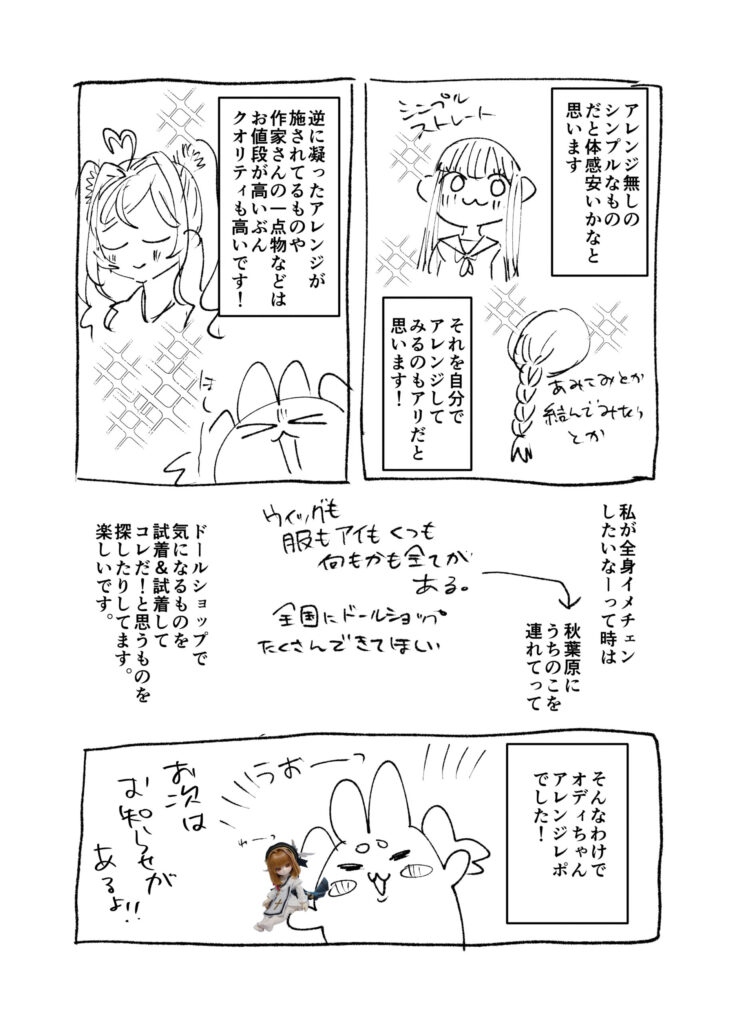 アレンジ無しの
シンプルなもの
だと体感安いかなと
思います
シンプル
ストレート
それを自分で
アレンジして
みるのもアリだと
思います！
あみてみとか
結んでみたら
とか
逆に凝ったアレンジが
施されてるものや
作家さんの一点物などは
お値段が高いぶん
クオリティも高いです！
私が全身イメチェン
したいなーって時は
秋葉原に
うちのこを
連れてって
ウィッグも
服もアイもくつも
何もかも全てが
ある。
全国にドールショップ
たくさんできてほしい
ドールショップで
気になるものを
試着&試着して
コレだ！と思うものを
探したりしてます。
楽しいです。
そんなわけで
オディちゃん
アレンジレポ
でした！
うおーーっ
わーっ
お次は
お知らせが
あるよ!!